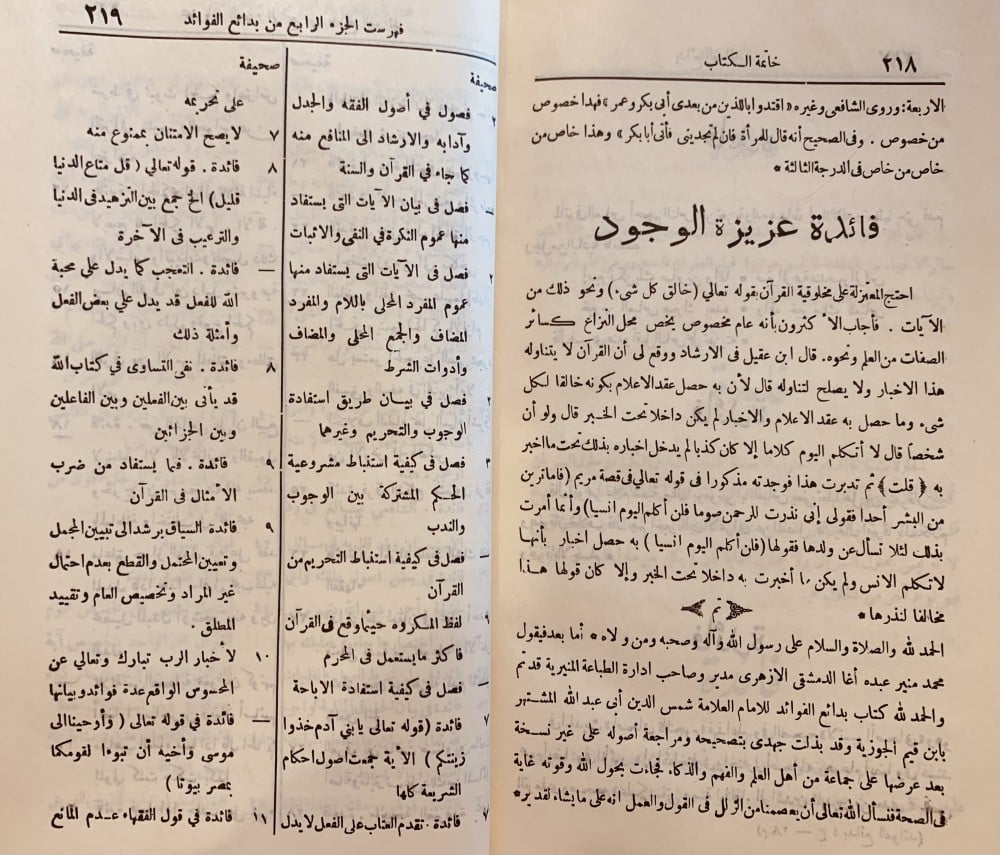 ٢١٨
خاتمة الكتاب
الاربعة: وروى الشافعى وغيره «اقتدوا باللذين من بعدى أبى بكر وعمر» فهذا خصوص
من خصوص . وفى الصحيح أنه قال للمرأة فان لم تجدينى فأتى أبا بكر» وهذا خاص من
خاص من خاص فى الدرجة الثالثة *
فائدة عزيزة الوجود
احتج المعتزلة على مخلوقية القرآن بقوله تعالي (خالق كل شىء) ونحو ذلك من
الآيات . فأجاب الأكثرون بأنه عام مخصوص يخص محل النزاع كسائر
الصفات من العلم ونحوه. قال ابن عقيل فى الارشاد ووقع لى أن القرآن لا يتناوله
هذا الاخبار ولا يصلح لتناوله قال لأن به حصل عقد الاعلام بكونه خالقا لكل
شىء وما حصل به عقد الاعلام والاخبار لم يكن داخلا تحت الخبر قال ولو أن
شخصا قال لا أتكلم اليوم كلاما إلا كان كذبا لم يدخل اخباره بذلك تحت ما اخبر
به (قلت) ثم تدبرت هذا فوجدته مذكورا فى قوله تعالي فى قصة مريم (فاما ترين
من البشر أحدا فقولى إنى نذرت للرحمن صوما فلن أكلم اليوم انسيا) وأنما أمرت
بذلك لئلا تسأل عن ولدها فقولها (فلن أكلم اليوم انسيا) به حصل اخبار بأنها
لا تكلم الانس ولم يكن ما أخبرت به داخلا تحت الخبر وإلا كان قولها هذا
مخالفا لنذرها *
تم
الحمد لله والصلاة والسلام على رسول الله وآله وصحبه ومن ولاه * أما بعد فيقول
محمد منير عبده أغا الدمشقى الازهرى مدير وصاحب ادارة الطباعة المنيرية قد تم
والحمد لله كتاب بدائع الفوائد للامام العلامة شمس الدين أبى عبد الله المشتهر
بابن قيم الجوزية وقد بذلت جهدى بتصحيحه ومراجعة أصوله على غير نسخة
بعد عرضها على جماعة من أهل العلم والفهم والذكاء فجاءت بحول الله وقوته غاية
فى الصحة فنسأل الله تعالى أن يعصمنا من الزلل فى القول والعمل انه على ما يشاء لقدير *
فهرست الجزء الرابع من بدائع الفوائد
٢١٩
صحيفة
٢ فصول في أصول الفقه والجدل
وآدابه والارشاد الى المنافع منه
كما جاء في القرآن والسنة
— فصل فى بيان الآيات التى يستفاد
منها عموم النكرة في النفى والاثبات
٢ فصل فى الآيات التى يستفاد منها
عموم المفرد المحلى باللام والمفرد
المضاف والجمع المحلى والمضاف
وأدوات الشرط
٢ فصل في بيان طريق استفادة
الوجوب والتحريم وغيرهما
٣ فصل فى كيفية استنباط مشروعية
الحكم المشتركة بين الوجوب
والندب
— فصل فى كيفية استنباط التحريم من
القرآن
٦ لفظ المكروه حيثما وقع فى القرآن
فاكثر ما يستعمل فى المحرم
— فصل فى كيفية استفادة الاباحة
٧ فائدة (قوله تعالى يابنى آدم خذوا
زينتكم) الآية جمعت اصول احكام
الشريعة كلها
٧ فائدة. تقدم العتاب على الفعل لا يدل
صحيفة
على تحريمه
٧ لا يصح الامتنان بممنوع منه
٨ فائدة . قوله تعالي (قل متاع الدنيا
قليل) الخ جمع بين التزهيد فى الدنيا
والترغيب فى الآخرة
— فائدة . التعجب كما يدل على محبة
الله للفعل قد يدل علي بغض الفعل
وأمثلة ذلك
٨ فائدة . نفى التساوى في كتاب الله
قد يأتى بين الفعلين وبين الفاعلين
وبين الجزائين
٩ فائدة . فيما يستفاد من ضرب
الأمثال فى القرآن
٩ فائدة السياق يرشد الى تبيين المجمل
وتعيين المحتمل والقطع بعدم احتمال
غير المراد وتخصيص العام وتقييد
المطلق .
١٠ لأخبار الرب تبارك وتعالي عن
المحسوس الواقع عدة فوائد وبيانها
— فائدة في قوله تعالى (وأوحينا الى
موسى وأخيه أن تبوءا لقومكما
بمصر بيوتا)
١١ فائدة في قول الفقهاء عدم المانع